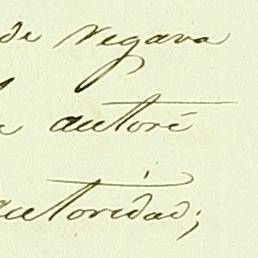 de Vegava
autoré
autoridad;